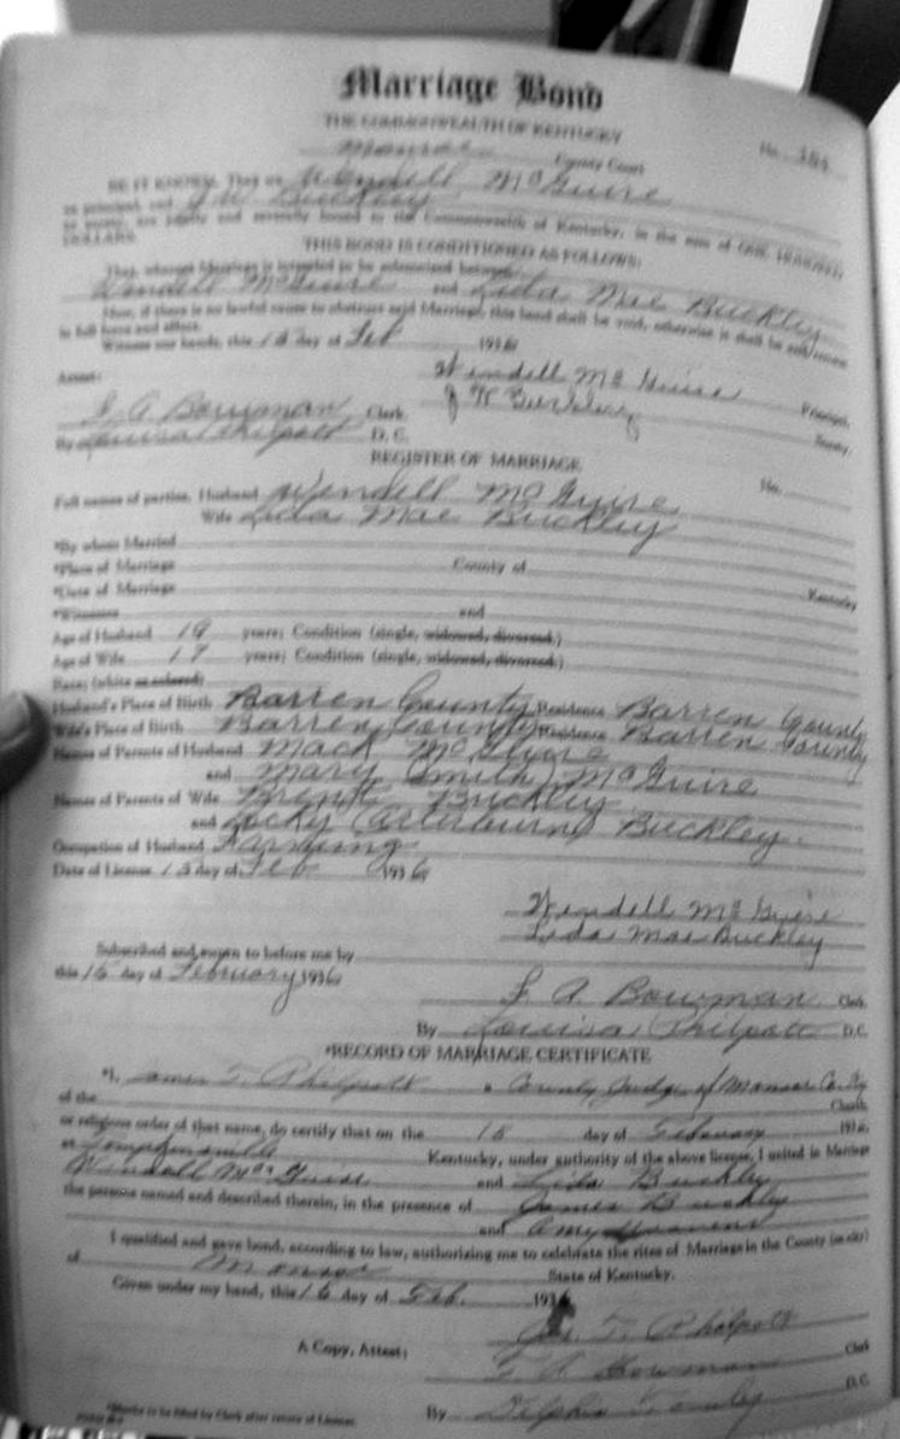 Marriage Bond
THE COMMONWEALTH OF KENTUCKY
No.
Monroe County Court
BE IT KNOWN, That we Wendell McGuire
as principal, and J W Buckley
as surety, are jointly and severally bound to the Commonwealth of Kentucky, in the sum of ONE HUNDRED
DOLLARS.
THIS BOND IS CONDITIONED AS FOLLOWS:
That, whereas Marriage is intended to be solemnized between
Wendell McGuire and Lida Mae Buckley
Now, if there is no lawful cause to obstruct said Marriage, this bond shall be void, otherwise it shall be and remain
in full force and effect.
Witness our hands, this 15 day of Feb 1936
Attest: Wendell McGuire Principal.
J W Buckley Surety.
Bowman Clerk
By Louisa Philpott D. C.
REGISTER OF MARRIAGE
No.
Full names of parties, Husband Wendell McGuire
Wife Lida Mae Buckley
*By whom Married
*Place of Marriage County of Kentucky
*Date of Marriage
*Witnesses and
Age of Husband 19 years; Condition (single, widowed, divorced.)
Age of Wife 17 years; Condition (single, widowed, divorced.)
Race; (white or colored)
Husband's Place of Birth Barren County Residence Barren County
Wife's Place of Birth Barren County Residence Barren County
Names of Parents of Husband Mack McGuire
and Mary (Smith) McGuire
Names of Parents of Wife Brent Buckley
and Arterburn) Buckley
Occupation of Husband Farming
Date of License 15 day of Feb 1936
Wendell McGuire
Lida Mae Buckley
Subscribed and sworn to before me by
this 15 day of February 1936
A. Bowman Clerk
By Louisa Philpott D.C.
*RECORD OF MARRIAGE CERTIFICATE
*I, James T. Philpott a County Judge of Monroe Co. Ky
of the Church
or religious order of that name, do certify that on the 15 day of February 1936
at Tompkinsville Kentucky, under authority of the above license, I united in Marriage
Wendell McGuire and Lida Buckley
the persons named and described therein, in the presence of James Buckley
and Amy
I qualified and gave bond, according to law, authorizing me to celebrate the rites of Marriage in the County (or city)
of Monroe State of Kentucky.
Given under my hand, this 15 day of Feb. 1936
Jas. T. Philpott
A Copy, Attest: A Bowman Clerk
By D.C.
*Blanks to be filled by Clerk after return of License.